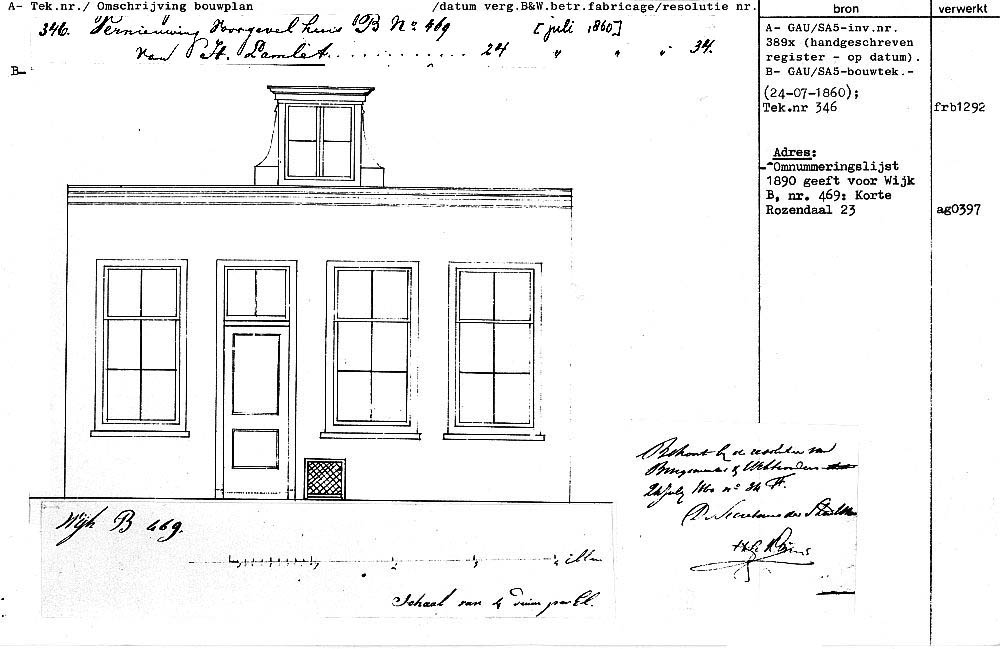 A- Tek.nr./ Omschrijving bouwplan /datum verg.B&W.betr.fabricage/resolutie nr.
bron
verwerkt
346. Vernieuwing Voorgevel huis B No 469 [juli 1860]
van H. Lamlet. . . . . . . . . . . . 24 " " " 34.
B-
A- GAU/SA5-inv.nr.
389x (handgeschreven
register - op datum).
B- GAU/SA5-bouwtek.-
(24-07-1860);
Tek.nr 346
frb1292
Adres:
-"Omnummeringslijst
1890 geeft voor Wijk
B, nr. 469: Korte
Rozendaal 23
ag0397
Wijk B 469.
Ellen
Schaal van 4 duim per El.
Behoort bij de resolutie van
Burgemeester & Wethouders
24 July 1860 no 34 F.
De Secretaris der Stad